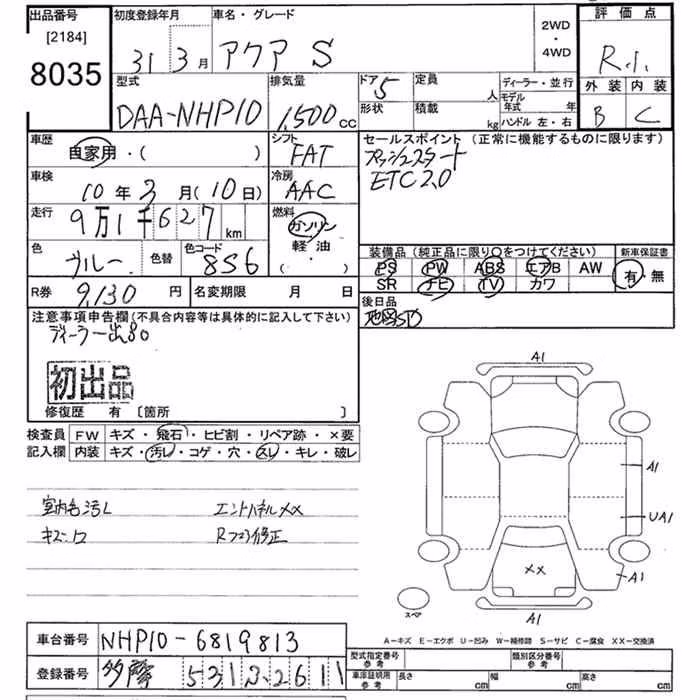 出品番号 初度登録年月 車名・グレード 2WD・4WD 評価点
[2184]
8035
31年 3月 アクア S R.1.
外装 内装
B C
型式 排気量 ドア 5 定員 人 ディーラー・並行
モデル年式 年
DAA-NHP10 1,500 cc 形状 積載 kg ハンドル 左・右
車歴 シフト セールスポイント (正常に機能するものに限ります)
自家用・( ) FAT プッシュスタート
車検 冷房 ETC2.0
10年3月(10日) AAC
走行 燃料
9万1千627km ガソリン
軽油
・( )
色 色替 色コード
ブルー 8S6
装備品(純正品に限り○をつけてください) 新車保証書
PS PW ABS エアB AW 有・無
SR ナビ TV カワ
R券 9,130円 名変期限 月 日
後日品
地図SD
注意事項申告欄(不具合内容等は具体的に記入して下さい)
初出品
修復歴 有 [箇所 ]
検査員 FW キズ・飛石・ヒビ割・リペア跡・×要
記入欄 内装 キズ・汚レ・コゲ・穴・スレ・キレ・破レ
汚レ エンドパネルXX
Rフロア修正
A1
A1
UA1
XX
A1
スペア
A1
A-キズ E-エクボ U-凹み W-補修跡 S-サビ C-腐食 XX-交換済
車台番号 NHP10-6819813
登録番号 多摩 531 ひ 2611
型式指定番号 参考 類別区分番号 参考
車庫証明用 参考 長さ cm 幅 cm 高さ cm